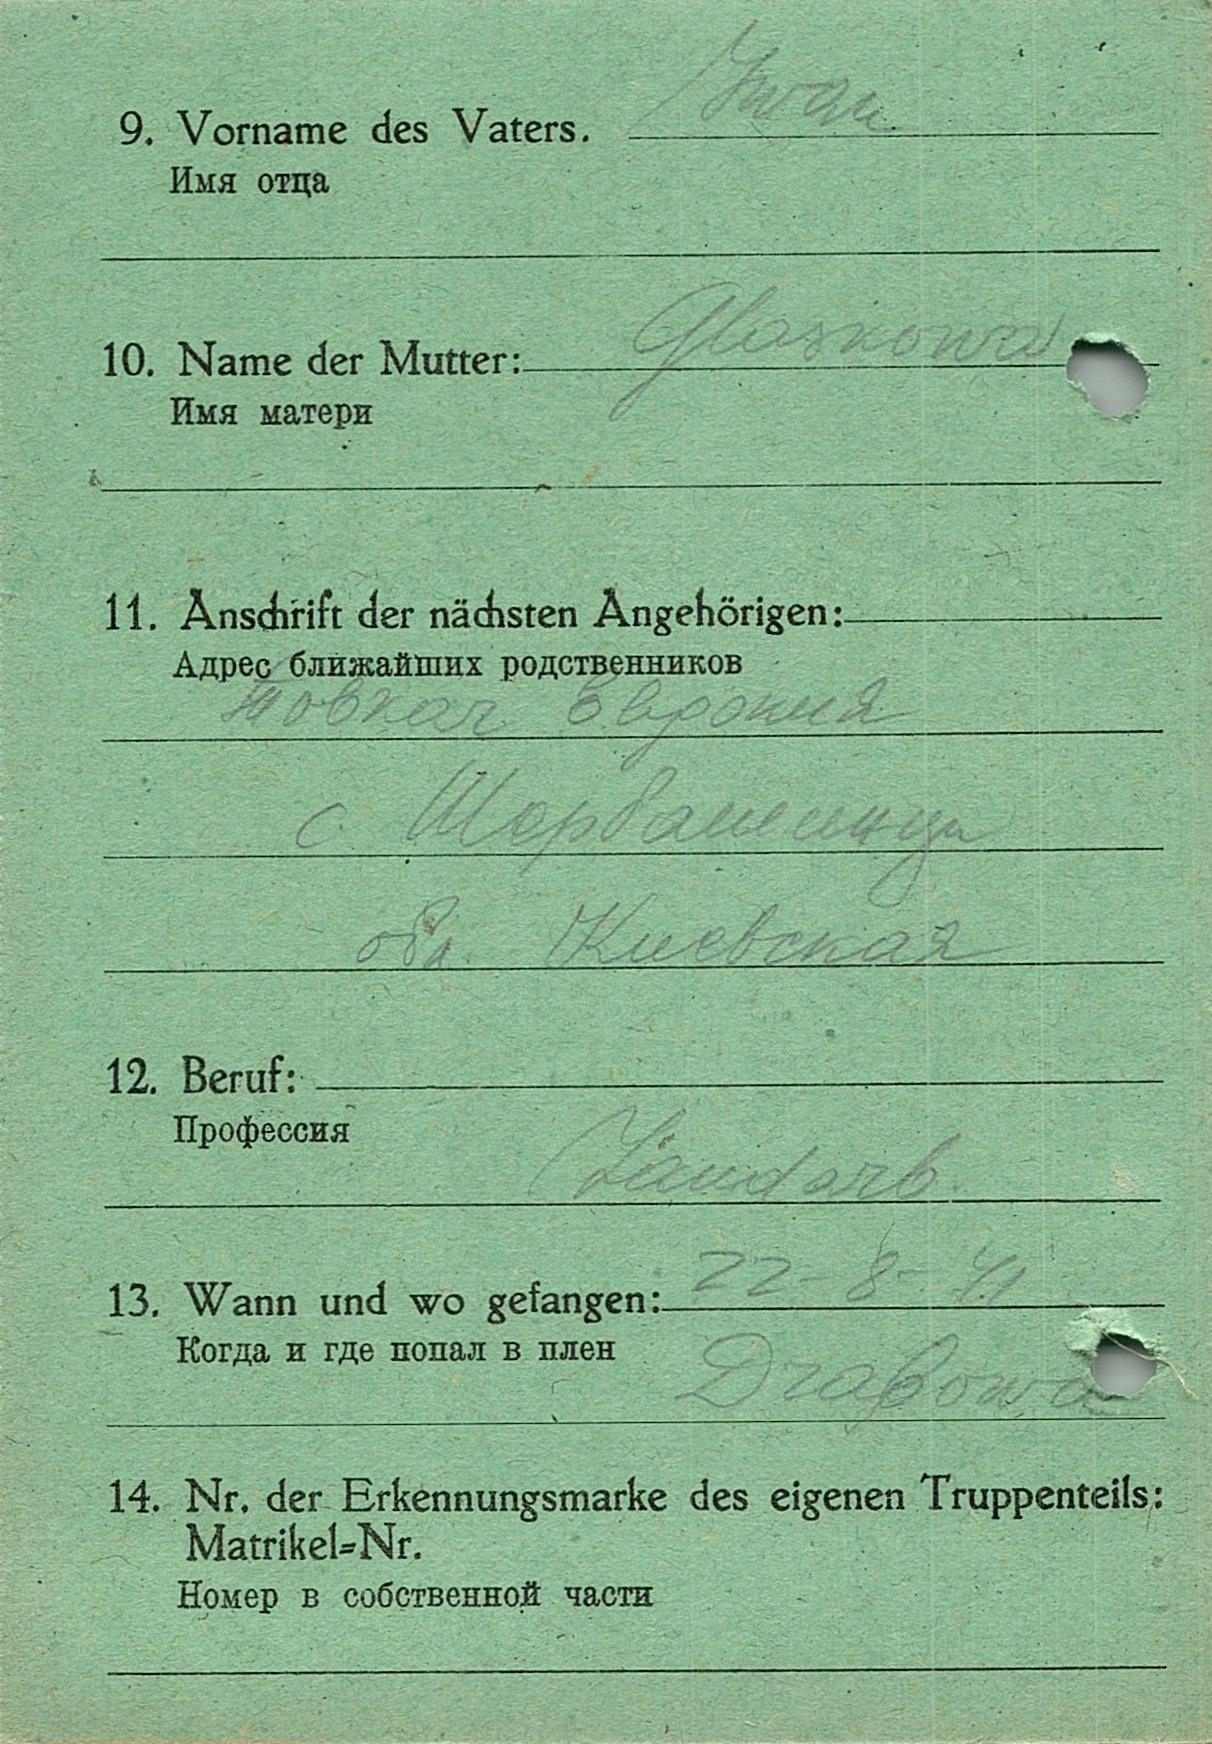 Iwan
9. Vorname des Vaters.
Имя отца
Glaskowa
10. Name der Mutter:
Имя матери
11. Anschrift der nächsten Angehörigen:
Адрес ближайших родственников
Товкач
с.
обл. Киевская
12. Beruf:
Профессия
Landarb.
13. Wann und wo gefangen: 22 8- 41
Когда и где попал в плен
14. Nr. der Erkennungsmarke des eigenen Truppenteils:
Matrikel=Nr.
Номер в собственной части